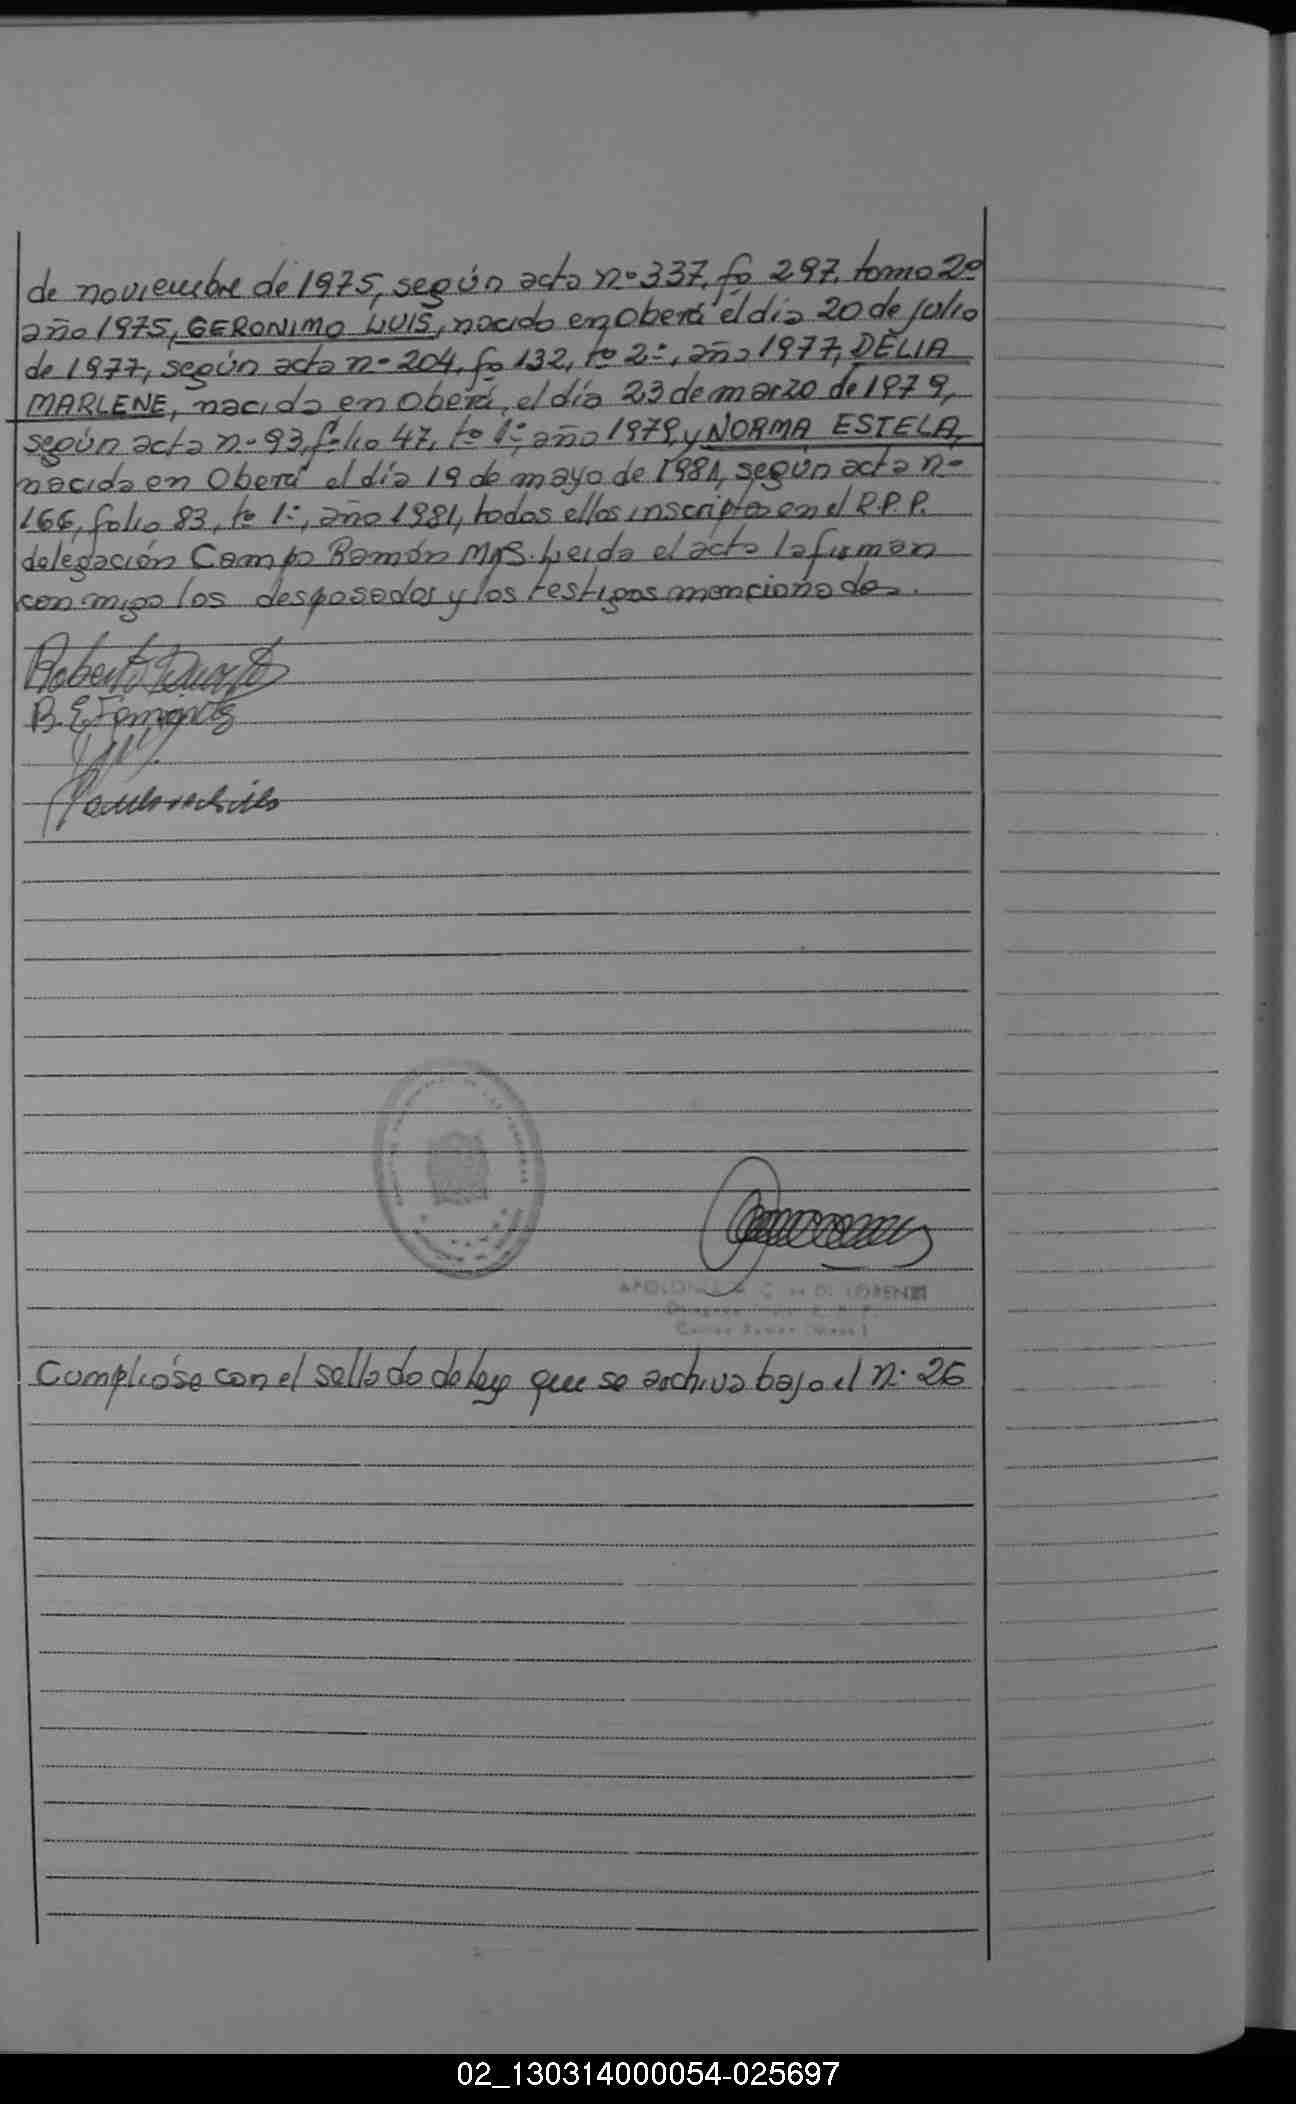 de noviembre de 1975, según acta nº 337, fº 297, tomo 2º
año 1975, GERONIMO LUIS, nacido en Oberá el día 20 de julio
de 1977, según acta nº 204, fº 132, tº 2º, año 1977, DELIA
MARLENE, nacida en Oberá, el día 23 de marzo de 1979,
según acta nº 93, folio 47, tº 1º, año 1979, y NORMA ESTELA,
nacida en Oberá el día 19 de mayo de 1981, según acta nº
166, folio 83, tº 1º, año 1981, todos ellos inscriptos en el R.P.P.
delegación Campo Ramón Mns. Leida el acta la firman
conmigo los desposados y los testigos mencionados.
Roberto
B. E
LORENZI
Cumplióse con el sellado de ley que se archiva bajo el nº 26
02_130314000054-025697